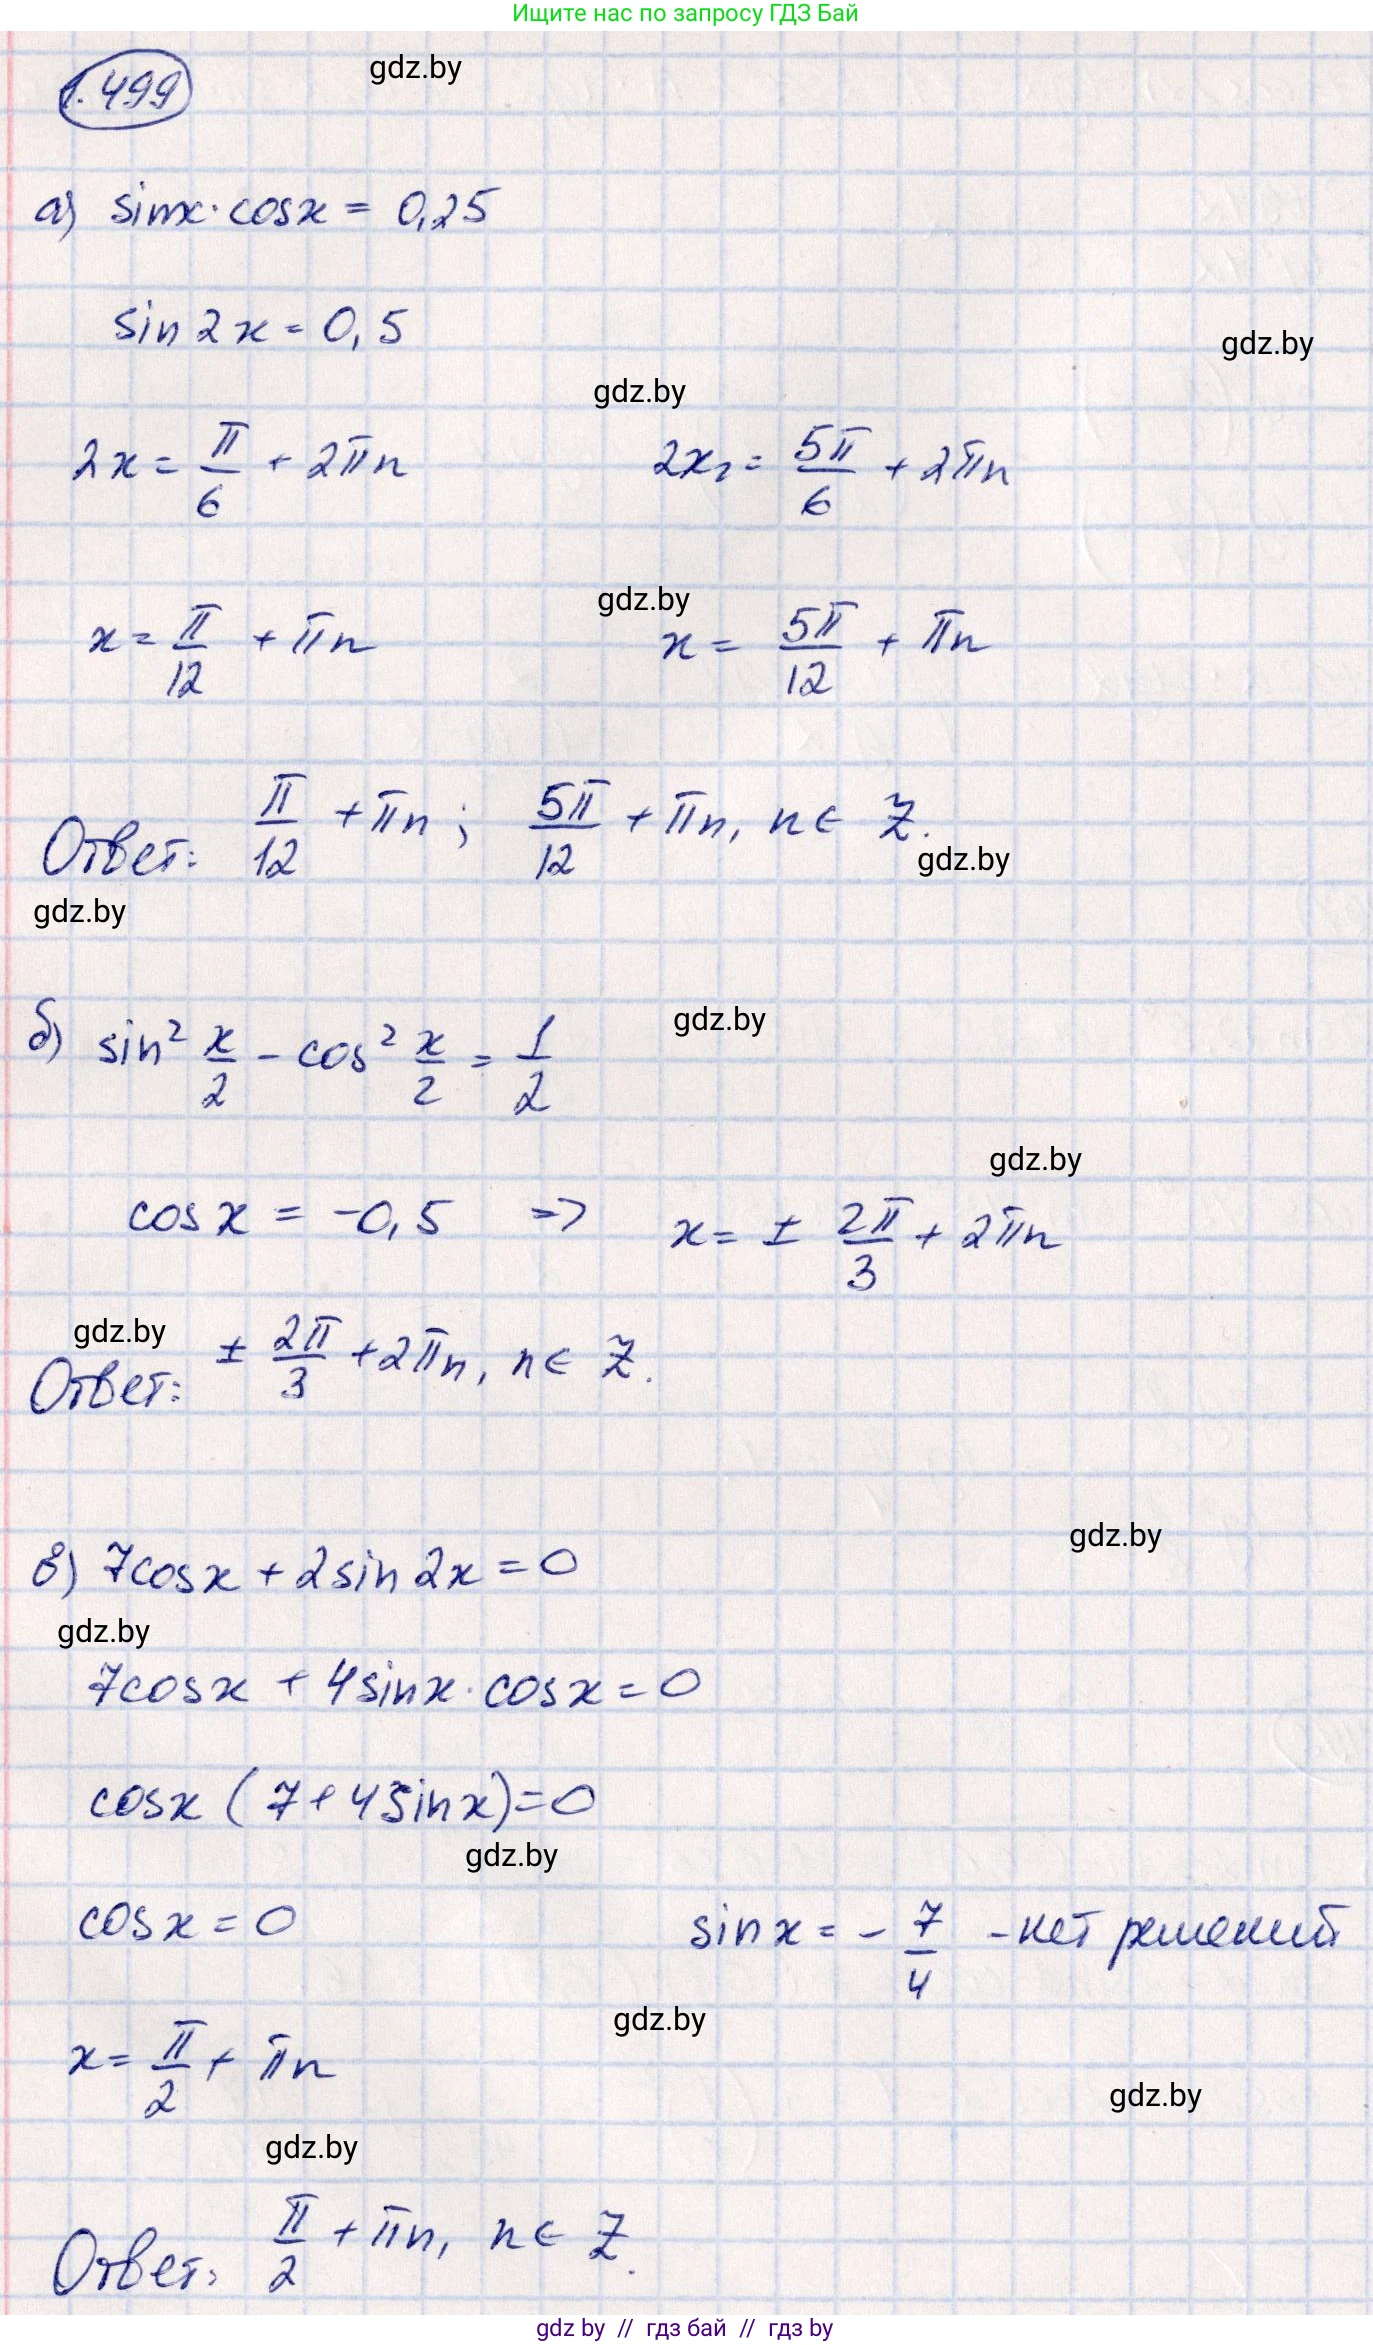 Ищите нас по запросу ГДЗ Бай
1.499
gdz.by
а) sinx·cosx = 0,25
sin 2x = 0,5
gdz.by
gdz.by
2x = π/6 + 2πn    2x₂ = 5π/6 + 2πn
gdz.by
x = π/12 + πn    x = 5π/12 + πn
Ответ: π/12 + πn; 5π/12 + πn, n ∈ Z.
gdz.by
gdz.by
gdz.by
б) sin² x/2 - cos² x/2 = 1/2
gdz.by
cos x = -0,5 => x = ± 2π/3 + 2πn
gdz.by
Ответ: ± 2π/3 + 2πn, n ∈ Z.
gdz.by
в) 7cosx + 2sin 2x = 0
gdz.by
7cosx + 4sinx·cosx = 0
cosx (7 + 4sinx) = 0
gdz.by
cosx = 0    sinx = - 7/4 - нет решений
gdz.by
x = π/2 + πn
gdz.by
gdz.by
Ответ: π/2 + πn, n ∈ Z.
gdz by // гдз бай // gdz by